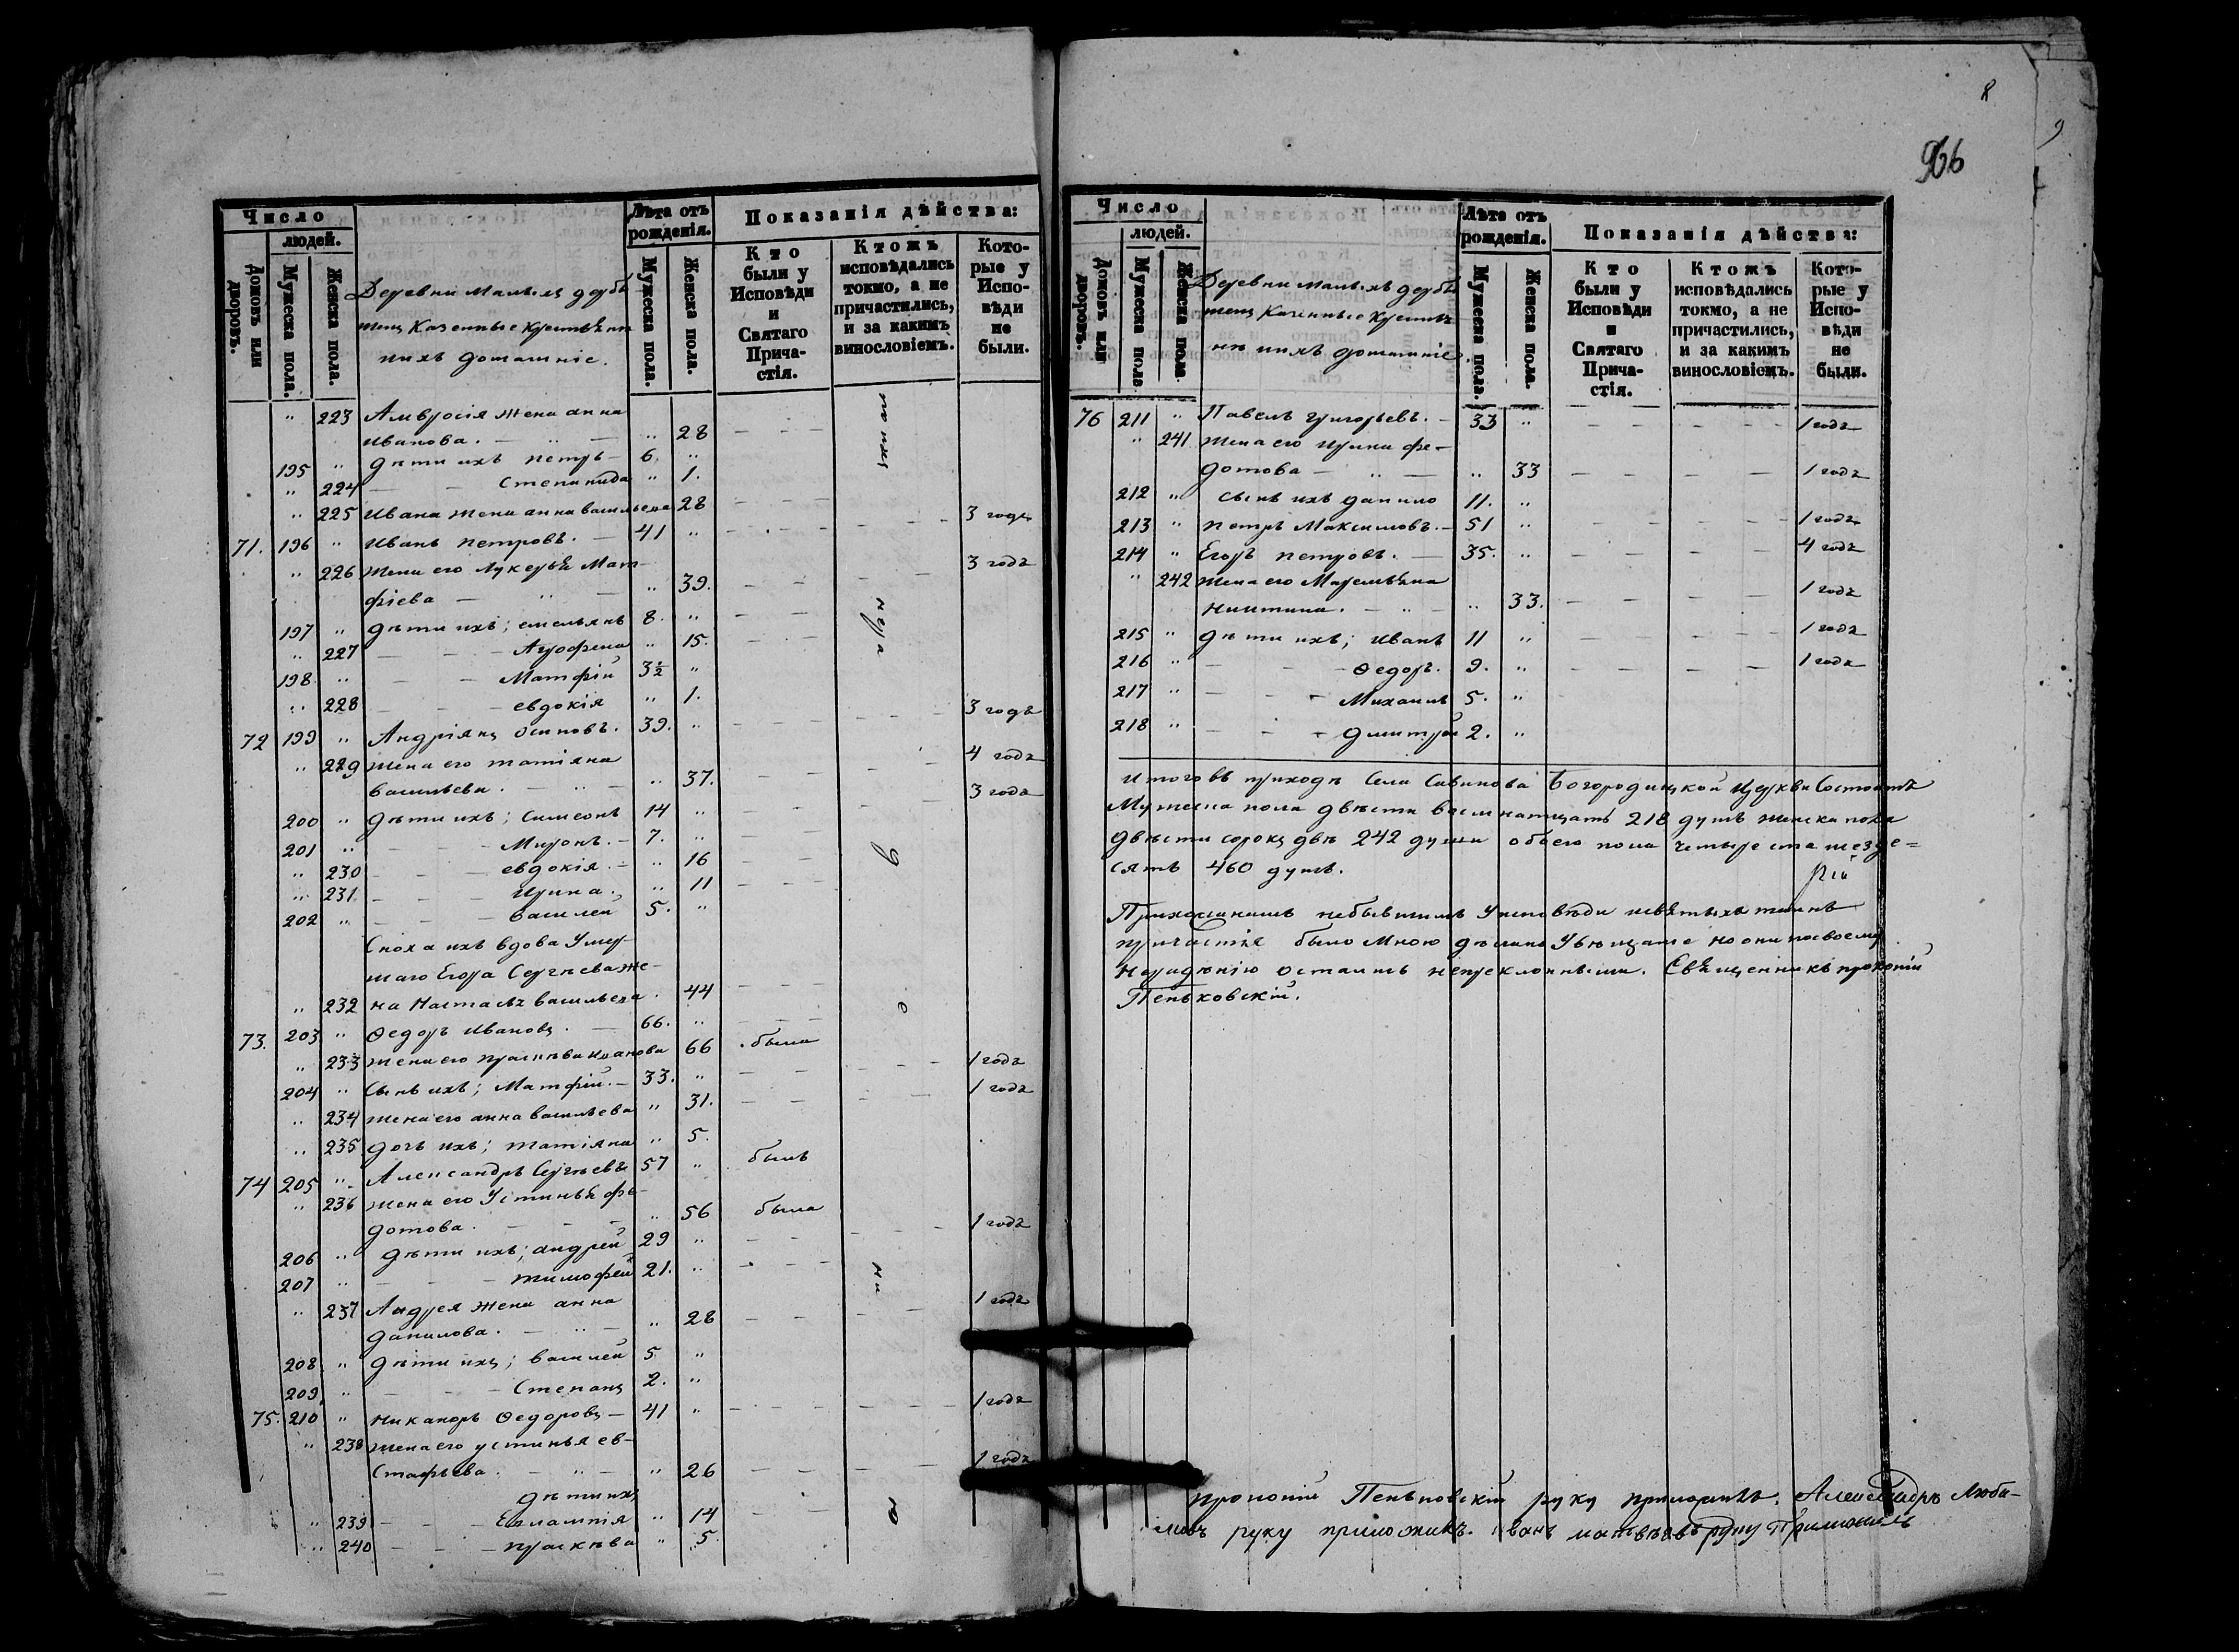 Число
людей.
Домовъ или дворовъ.
Мужеска пола.
Женска пола.
Деревни Малыхъ дерб
тенц Казенные крестьян
нихъ домашніе.
Лѣта отъ рожденія.
Мужеска пола.
Женска пола.
Показанія дѣйства:
Кто были у Исповѣди и Святаго Причастія.
Ктожъ исповѣдались токмо, а не причастились, и за какимъ винословіемъ.
Которые у Исповѣди не были.
" 223 Амвросія жена анна
иванова. — " — " 28 — — —
195 " дѣти ихъ петръ — 6. "
" 224 — — Степанида " 1.
" 225 Ивана жена анна васильева 28 — — — 3 года
71. 196 " Иванъ Петровъ. — 41 " — — — — — 3 года
" 226 жена его Лукерья Мат-
фіева — " — " 39. — — —
197 " дѣти ихъ; емельянъ 8. " — — —
" 227 — — — Агрофена " 15. — — —
198 " — — Матфій 3½ "
" 228 — — — евдокія " 1.
72 199 " Андріянъ Осиповъ. 39. " — — — — — 3 года
" 229 жена его татіяна 4 года
васильева. — " — " 37. — — — — 3 года
200 " дѣти ихъ; Симеонъ 14 " — — —
201 " — — — Миронъ. — 7. " — — —
" 230 — — евдокія. — " 16 — — —
" 231. — — — Ирина. " 11 — — —
202 " — — — Василей 5. "
Сноха ихъ вдова Умер-
шаго Егора Сергѣева же-
" 232 на Настасья васильева. 44 — — —
73. 203 " Ѳедоръ Ивановъ. — 66. " — — —
" 233 жена его прасковья иванова 66 была
204 " Сынъ ихъ; Матфій. — 33. " — — — — — 1 годъ
" 234 жена его анна васильева " 31. — — — — — 1 годъ
" 235 дочь ихъ; татіяна " 5.
74 205 " Александръ Сергѣевъ 57 " былъ
" 236 жена его Устинья фе-
дотова. — — — " 56 была
206 " дѣти ихъ; андрей 29 " — — — — — 1 годъ
207 " — — — тимофей 21. " — — —
" 237 Андрея жена анна
данилова. — " — " 28 — — — — 1 годъ
208 " дѣти ихъ; василей 5 "
209 " — — — Степанъ 2. "
75. 210 " Никаноръ Ѳедоровъ — 41 " — — — — — — 1 годъ
" 238 жена его устинья ев-
стафьева. — " — " 26 — — — — 1 годъ
дѣти ихъ
" 239 — — — Евлампія " 14 — — —
" 240 — — — прасковья " 5.
по
д
о
966
Число
людей.
Домовъ или дворовъ.
Мужеска пола
Женска пола
Деревни Малыхъ дербы
тенц Казенные крестья
не нихъ домашніе.
Лѣта отъ рожденія.
Мужеска пола.
Женска пола.
Показанія дѣйства:
Кто были у Исповѣди и Святаго Причастія.
Ктожъ исповѣдались токмо, а не причастились, и за какимъ винословіемъ.
Которые у Исповѣди не были.
76 211 " Павелъ Григорьевъ. — 33 " — — — — — 1 годъ
" 241. жена его Ирина фе-
дотова — " — " 33 — — — — 1 годъ
212 " сынъ ихъ данило 11. "
213 " Петръ Максимовъ. — 51 " — — — — — 1 годъ
214 " Егоръ Петровъ. — 35. " — — — — 4 года
" 242 жена его Маремьяна
Никитина. — " — " 33. — — — — 1 годъ
215 " дѣти ихъ; Иванъ 11 " — — — — 1 годъ
216 " — — — Ѳедоръ. 9. " — — — — 1 годъ
217 " — — — Михаилъ 5. "
218 " — — — дмитрій 2. "
Итого въ приходѣ Села Савинова Богородицкой Церкви Состоитъ
Мужеска пола двѣсти восемнатцать 218 душъ женска пола
двѣсти сорокъ двѣ 242 души обоего пола четыреста шездe=
сятъ 460 душъ.
Прихожанамъ небывшимъ у исповѣди и святыхъ таинъ
причастія было мною дѣлано Увѣщаніе но они по своему
нерадѣнію остались непреклонными. Священникъ прокопій
Пеньковскій.
Прокопій Пеньковскій руку приложилъ. Александръ Люби-
мовъ руку приложилъ. Иванъ матвѣевъ руку Приложилъ